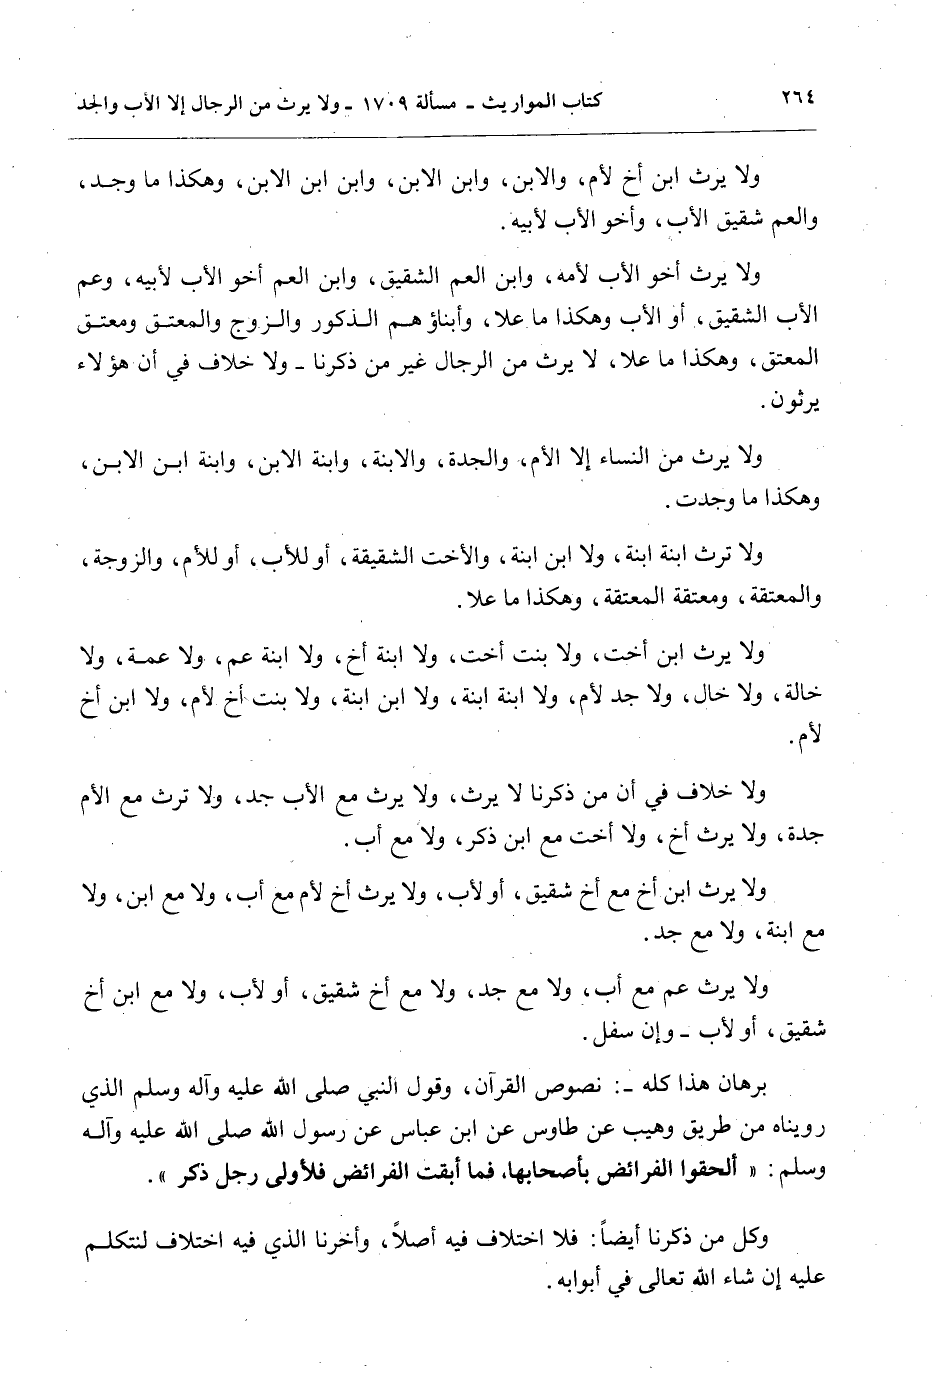 ٢٦٤
كتاب المواريث - مسألة ١٧٠٩ - ولا يرث من الرجال إلا الأب والجد
ولا يرث ابن أخ لأم، والابن، وابن الابن، وابن ابن الابن، وهكذا ما وجد،
والعم شقيق الأب، وأخو الأب لأبيه.
ولا يرث أخو الأب لأمه، وابن العم الشقيق، وابن العم أخو الأب لأبيه، وعم
الأب الشقيق، أو الأب وهكذا ما علا، وأبناؤ هم الذكور والزوج والمعتق ومعتق
المعتق، وهكذا ما علا، لا يرث من الرجال غير من ذكرنا - ولا خلاف في أن هؤ لاء
يرثون.
ولا يرث من النساء إلا الأم، والجدة، والابنة، وابنة الابن، وابنة ابن الابن،
وهكذا ما وجدت.
ولا ترث ابنة ابنة، ولا ابن ابنة، والأخت الشقيقة، أو للأب، أو للأم، والزوجة،
والمعتقة، ومعتقة المعتقة، وهكذا ما علا.
ولا يرث ابن أخت، ولا بنت أخت، ولا ابنة أخ، ولا ابنة عم، ولا عمة، ولا
خالة، ولا خال، ولا جد لأم، ولا ابنة ابنة، ولا ابن ابنة، ولا بنت أخ لأم، ولا ابن أخ
لأم.
ولا خلاف في أن من ذكرنا لا يرث، ولا يرث مع الأب جد، ولا ترث مع الأم
جدة، ولا يرث أخ، ولا أخت مع ابن ذكر، ولا مع أب.
ولا يرث ابن أخ مع أخ شقيق، أو لأب، ولا يرث أخ لأم مع أب، ولا مع ابن، ولا
مع ابنة، ولا مع جد.
ولا يرث عم مع أب، ولا مع جد، ولا مع أخ شقيق، أو لأب، ولا مع ابن أخ
شقيق، أو لأب - وإن سفل.
برهان هذا كله -: نصوص القرآن، وقول النبي صلى الله عليه وآله وسلم الذي
رويناه من طريق وهيب عن طاوس عن ابن عباس عن رسول الله صلى الله عليه وآله
وسلم: « ألحقوا الفرائض بأصحابها، فما أبقت الفرائض فلأولى رجل ذكر ».
وكل من ذكرنا أيضاً: فلا اختلاف فيه أصلاً، وأخرنا الذي فيه اختلاف لنتكلم
عليه إن شاء الله تعالى في أبوابه.